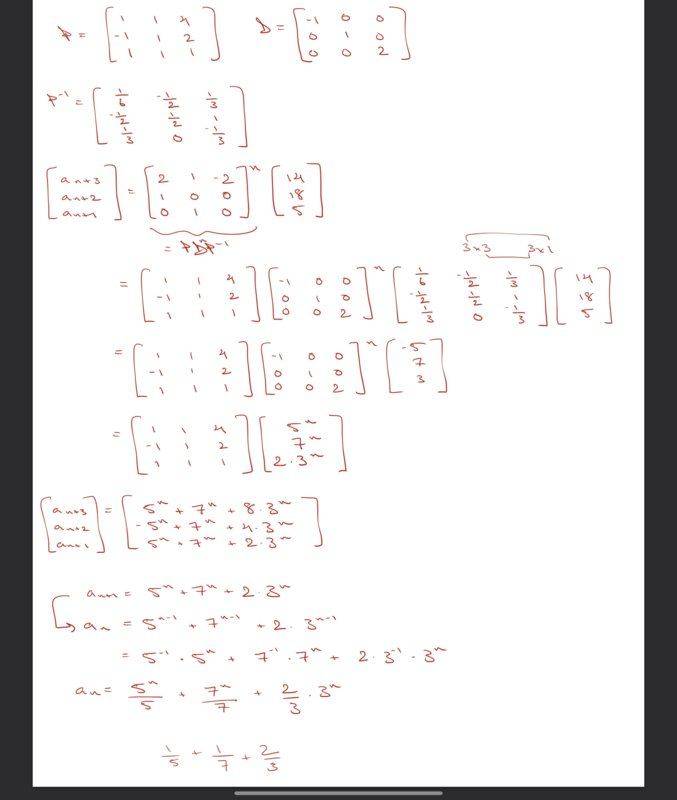 P = [ 1 1 4 ; -1 1 2 ; 1 1 1 ] D = [ -1 0 0 ; 0 1 0 ; 0 0 2 ]
P⁻¹ = [ 1/6 -1/2 1/3 ; -1/2 1/2 1 ; 1/3 0 -1/3 ]
[ aₙ₊₃ ; aₙ₊₂ ; aₙ₊₁ ] = [ 2 1 -2 ; 1 0 0 ; 0 1 0 ]ⁿ [ 14 ; 18 ; 5 ]
= PDⁿP⁻¹ 3×3 3×1
= [ 1 1 4 ; -1 1 2 ; 1 1 1 ] [ -1 0 0 ; 0 1 0 ; 0 0 2 ]ⁿ [ 1/6 -1/2 1/3 ; -1/2 1/2 1 ; 1/3 0 -1/3 ] [ 14 ; 18 ; 5 ]
= [ 1 1 4 ; -1 1 2 ; 1 1 1 ] [ -1 0 0 ; 0 1 0 ; 0 0 2 ]ⁿ [ -5 ; 7 ; 3 ]
= [ 1 1 4 ; -1 1 2 ; 1 1 1 ] [ 5ⁿ ; 7ⁿ ; 2·3ⁿ ]
[ aₙ₊₃ ; aₙ₊₂ ; aₙ₊₁ ] = [ 5ⁿ + 7ⁿ + 8·3ⁿ ; -5ⁿ + 7ⁿ + 4·3ⁿ ; 5ⁿ + 7ⁿ + 2·3ⁿ ]
aₙ₊₁ = 5ⁿ + 7ⁿ + 2·3ⁿ
↳ aₙ = 5ⁿ⁻¹ + 7ⁿ⁻¹ + 2·3ⁿ⁻¹
= 5⁻¹·5ⁿ + 7⁻¹·7ⁿ + 2·3⁻¹·3ⁿ
aₙ = 5ⁿ/5 + 7ⁿ/7 + 2/3·3ⁿ
1/5 + 1/7 + 2/3